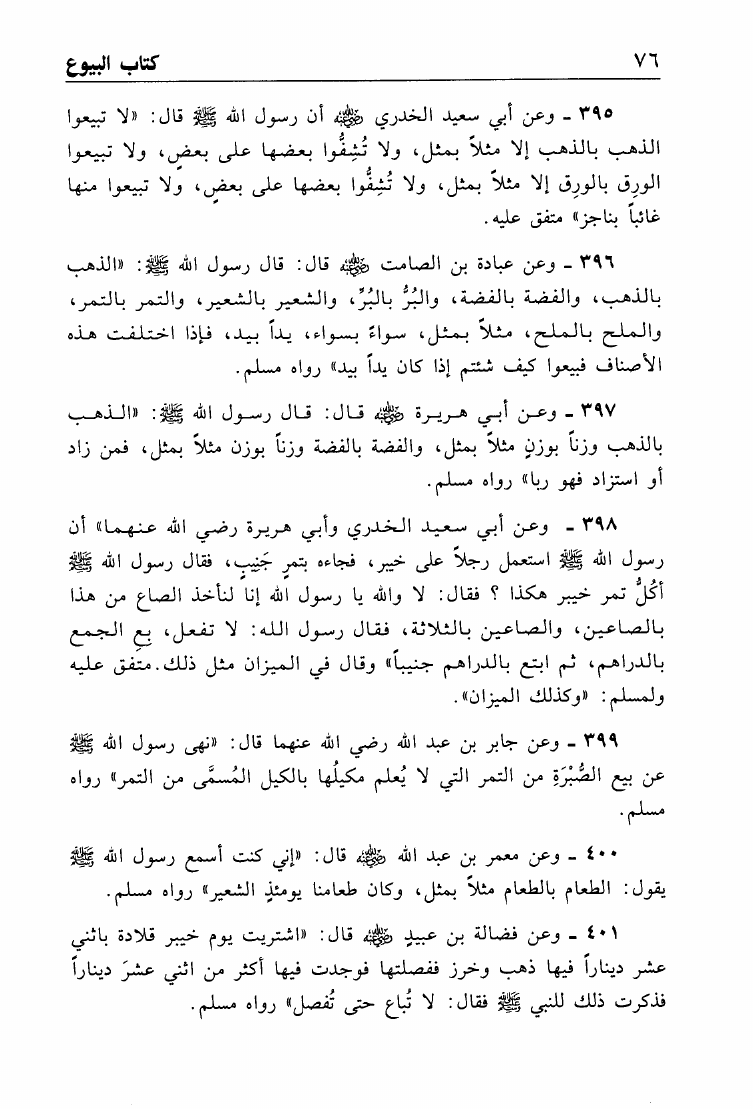 ٧٦ كتاب البيوع
٣٩٥ ـ وعن أبي سعيد الخدري ﷺ أن رسول الله ﷺ قال: «لا تبيعوا
الذهب بالذهب إلا مثلاً بمثل، ولا تُشِفُّوا بعضها على بعضٍ، ولا تبيعوا
الورِق بالورِق إلا مثلاً بمثل، ولا تُشِفُّوا بعضها على بعضٍ، ولا تبيعوا منها
غائباً بناجز» متفق عليه.
٣٩٦ ـ وعن عبادة بن الصامت رضي الله عنه قال: قال رسول الله ﷺ: «الذهب
بالذهب، والفضة بالفضة، والبُرُّ بالبُرِّ، والشعير بالشعير، والتمر بالتمر،
والملح بالملح، مثلاً بمثل، سواءً بسواء، يداً بيد، فإذا اختلفت هذه
الأصناف فبيعوا كيف شئتم إذا كان يداً بيد» رواه مسلم.
٣٩٧ ـ وعن أبي هريرة رضي الله عنه قال: قال رسول الله ﷺ: «الذهب
بالذهب وزناً بوزنٍ مثلاً بمثل، والفضة بالفضة وزناً بوزن مثلاً بمثل، فمن زاد
أو استزاد فهو ربا» رواه مسلم.
٣٩٨ ـ وعن أبي سعيد الخدري وأبي هريرة رضي الله عنهما» أن
رسول الله ﷺ استعمل رجلاً على خيبر، فجاءه بتمرٍ جَنِيبٍ، فقال رسول الله ﷺ
أكُلُّ تمر خيبر هكذا ؟ فقال: لا والله يا رسول الله إنا لنأخذ الصاع من هذا
بالصاعين، والصاعين بالثلاثة، فقال رسول الله: لا تفعل، بِعِ الجمع
بالدراهم، ثم ابتع بالدراهم جنيباً» وقال في الميزان مثل ذلك. متفق عليه
ولمسلم: «وكذلك الميزان».
٣٩٩ ـ وعن جابر بن عبد الله رضي الله عنهما قال: «نهى رسول الله ﷺ
عن بيع الصُّبْرَةِ من التمر التي لا يُعلم مكيلُها بالكيل المُسمَّى من التمر» رواه
مسلم.
٤٠٠ ـ وعن معمر بن عبد الله رضي الله عنه قال: «إني كنت أسمع رسول الله ﷺ
يقول: الطعام بالطعام مثلاً بمثل، وكان طعامنا يومئذٍ الشعير» رواه مسلم.
٤٠١ ـ وعن فضالة بن عبيدٍ رضي الله عنه قال: «اشتريت يوم خيبر قلادة باثني
عشر ديناراً فيها ذهب وخرز ففصلتها فوجدت فيها أكثر من اثني عشرَ ديناراً
فذكرت ذلك للنبي ﷺ فقال: لا تُباع حتى تُفصل» رواه مسلم.